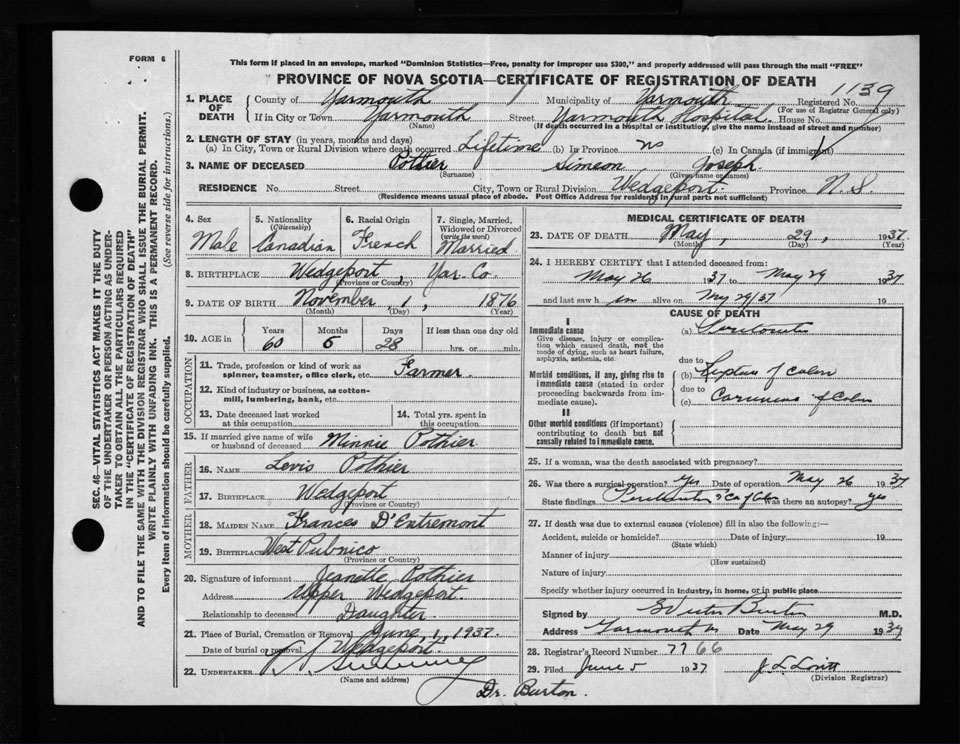 FORM 6
This form if placed in an envelope, marked "Dominion Statistics—Free, penalty for improper use $300," and properly addressed will pass through the mail "FREE"
PROVINCE OF NOVA SCOTIA—CERTIFICATE OF REGISTRATION OF DEATH
1139
1. PLACE OF DEATH County of Yarmouth Municipality of Yarmouth Registered No.
(For use of Registrar General only)
If in City or Town Yarmouth Street Yarmouth Hospital House No.
(Name) (If death occurred in a hospital or institution, give the name instead of street and number)
2. LENGTH OF STAY (in years, months and days)
(a) In City, Town or Rural Division where death occurred Lifetime (b) In Province no (c) In Canada (if immigrant)
3. NAME OF DECEASED Pothier Simeon Joseph
(Surname) (Given name or names)
RESIDENCE No. Street City, Town or Rural Division Wedgeport Province N.S.
(Residence means usual place of abode. Post Office Address for residents in rural parts not sufficient)
4. Sex Male
5. Nationality (Citizenship) Canadian
6. Racial Origin French
7. Single, Married, Widowed or Divorced (write the word) Married
8. BIRTHPLACE Wedgeport, Yar. Co.
(Province or Country)
9. DATE OF BIRTH November 1, 1876
(Month) (Day) (Year)
10. AGE in Years Months Days If less than one day old
60 6 28 hrs. or min.
OCCUPATION
11. Trade, profession or kind of work as spinner, teamster, office clerk, etc. Farmer
12. Kind of industry or business, as cotton-mill, lumbering, bank, etc.
13. Date deceased last worked at this occupation
14. Total yrs. spent in this occupation
15. If married give name of wife or husband of deceased Minnie Pothier
FATHER
16. NAME Levis Pothier
17. BIRTHPLACE Wedgeport
(Province or Country)
MOTHER
18. MAIDEN NAME Frances D'Entremont
19. BIRTHPLACE West Pubnico
(Province or Country)
20. Signature of informant Jeanette Pothier
Address Upper Wedgeport.
Relationship to deceased Daughter
21. Place of Burial, Cremation or Removal June, 1, 1937.
Date of burial or removal Wedgeport.
22. UNDERTAKER
(Name and address)
Dr. Burton.
MEDICAL CERTIFICATE OF DEATH
23. DATE OF DEATH May, 29, 1937
(Month) (Day) (Year)
24. I HEREBY CERTIFY that I attended deceased from:
May 26 1937 to May 29 1937
and last saw h im alive on May 29/37 19
CAUSE OF DEATH
I
Immediate cause (a) Peritonitis
Give disease, injury or complication which caused death, not the mode of dying, such as heart failure, asphyxia, asthenia, etc.
due to
Morbid conditions, if any, giving rise to immediate cause (stated in order proceeding backwards from immediate cause). (b) Rupture of Colon
due to
(c) Carcinoma of Colon
II
Other morbid conditions (if important) contributing to death but not causally related to immediate cause.
25. If a woman, was the death associated with pregnancy?
26. Was there a surgical operation? Yes Date of operation May 26 1937
State findings Peritonitis & Ca of Colon Was there an autopsy? yes
27. If death was due to external causes (violence) fill in also the following:—
Accident, suicide or homicide? Date of injury 19
(State which)
Manner of injury
(How sustained)
Nature of injury
Specify whether injury occurred in industry, in home, or in public place
Signed by Burton M.D.
Address Yarmouth Date May 29 1937
28. Registrar's Record Number 7766
29. Filed June 5 1937 J. L. Lovitt
(Division Registrar)
SEC. 46—VITAL STATISTICS ACT MAKES IT THE DUTY
OF THE UNDERTAKER OR PERSON ACTING AS UNDER-
TAKER TO OBTAIN ALL THE PARTICULARS REQUIRED
IN THE "CERTIFICATE OF REGISTRATION OF DEATH"
AND TO FILE THE SAME WITH THE DIVISION REGISTRAR WHO SHALL ISSUE THE BURIAL PERMIT.
WRITE PLAINLY WITH UNFADING INK. THIS IS A PERMANENT RECORD.
Every item of information should be carefully supplied. (See reverse side for instructions.)